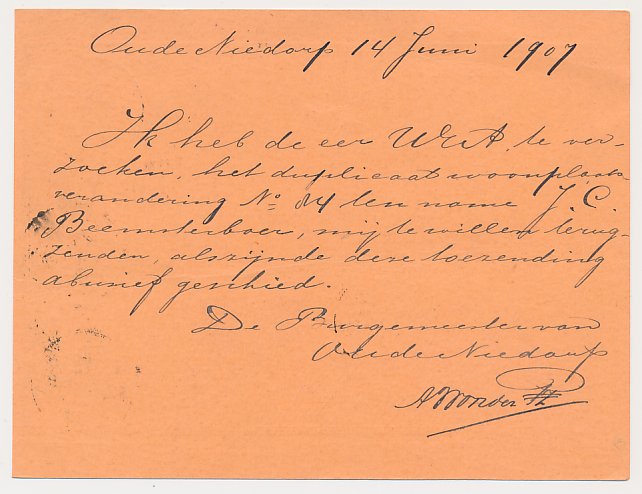 Oude Niedorp 14 Juni 1907
Ik heb de eer UEA. te ver-
zoeken, het duplicaat woonplaats-
verandering No. 84 ten name J. C.
Beemsterboer, mij te willen terug-
zenden, alszijnde deze toezending
abusief geschied.
De Burgemeester van
Oude Niedorp
A Wonder Pz